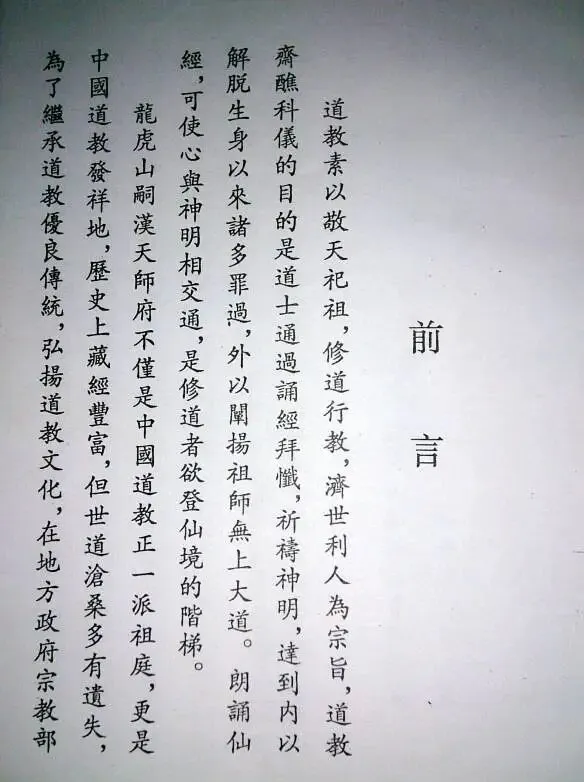 前言
道教素以敬天祀祖，修道行教，濟世利人為宗旨，道教
齋醮科儀的目的是道士通過誦經拜懺，祈禱神明，達到內以
解脫生身以來諸多罪過，外以闡揚祖師無上大道。朗誦仙
經，可使心與神明相交通，是修道者欲登仙境的階梯。
龍虎山嗣漢天師府不僅是中國道教正一派祖庭，更是
中國道教發祥地，歷史上藏經豐富，但世道滄桑多有遺失，
為了繼承道教優良傳統，弘揚道教文化，在地方政府宗教部